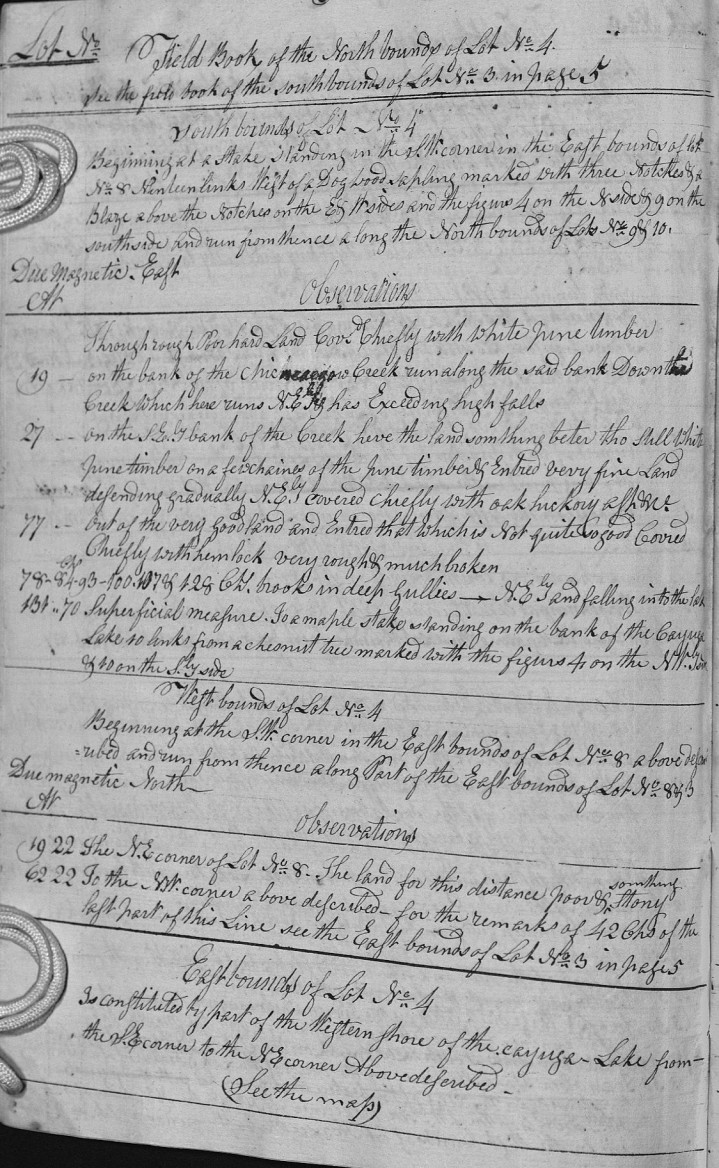 Lot No.
Field Book of the North bounds of Lot No. 4.
See the field Book of the south bounds of Lot No. 3. in page 5
South bounds of Lot No. 4
Beginning at a Stake Standing in the S.W. corner in the East bounds of lot
No. 8 Nineteen links West of a Dogwood Sapling marked with three Notches & a
Blaze above the Notches on the E & W sides and the figure 4 on the N side & 9 on the
south side and run from thence along the North bounds of Lots No. 9 & 10.
Due Magnetic East
At
Observations
Through rough Poor hard Land Covd. Chiefly with White pine timber
19 — on the bank of the Creek run along the said bank Down the
Creek which here runs N.E.ly & has Exceeding high falls
27 — on the S.E.ly bank of the Creek here the land somthing beter tho still White
pine timber on a few chaines of the pine timber & Entred very fine Land
desending gradually N.E.ly covered Chiefly with oak hickory ash &c.
77 — out of the very good land and Entred that which is Not quite so good Covred
Chiefly with hemlock very rough & much broken
78 - 84 - 93 - 100 - 107 & 128 Chs. brooks in deep Gullies — N.E.ly and falling into the lake
131 .. 70 Superficial measure. To a maple stake standing on the bank of the Cayuga
Lake 10 links from a chesnut tree marked with the figure 4 on the N.W.ly side
& 10 on the S.ly side
West bounds of Lot No. 4
Beginning at the S.W. corner in the East bounds of Lot No. 8 above desc
=ribed and run from thence along Part of the East bounds of Lot No. 8 & 3
Due magnetic North
At
Observations
19 22 The N.E corner of Lot No. 8. The land for this distance poor & something Stony
62 22 To the N.W. corner above described — for the remarks of 42 Chs of the
last part of this Line see the East bounds of Lot No. 3 in page 5
East bounds of Lot No. 4
Is constituted by part of the Western shore of the cayuga - Lake from —
the S.E corner to the N.E corner Above described —
(See the map)